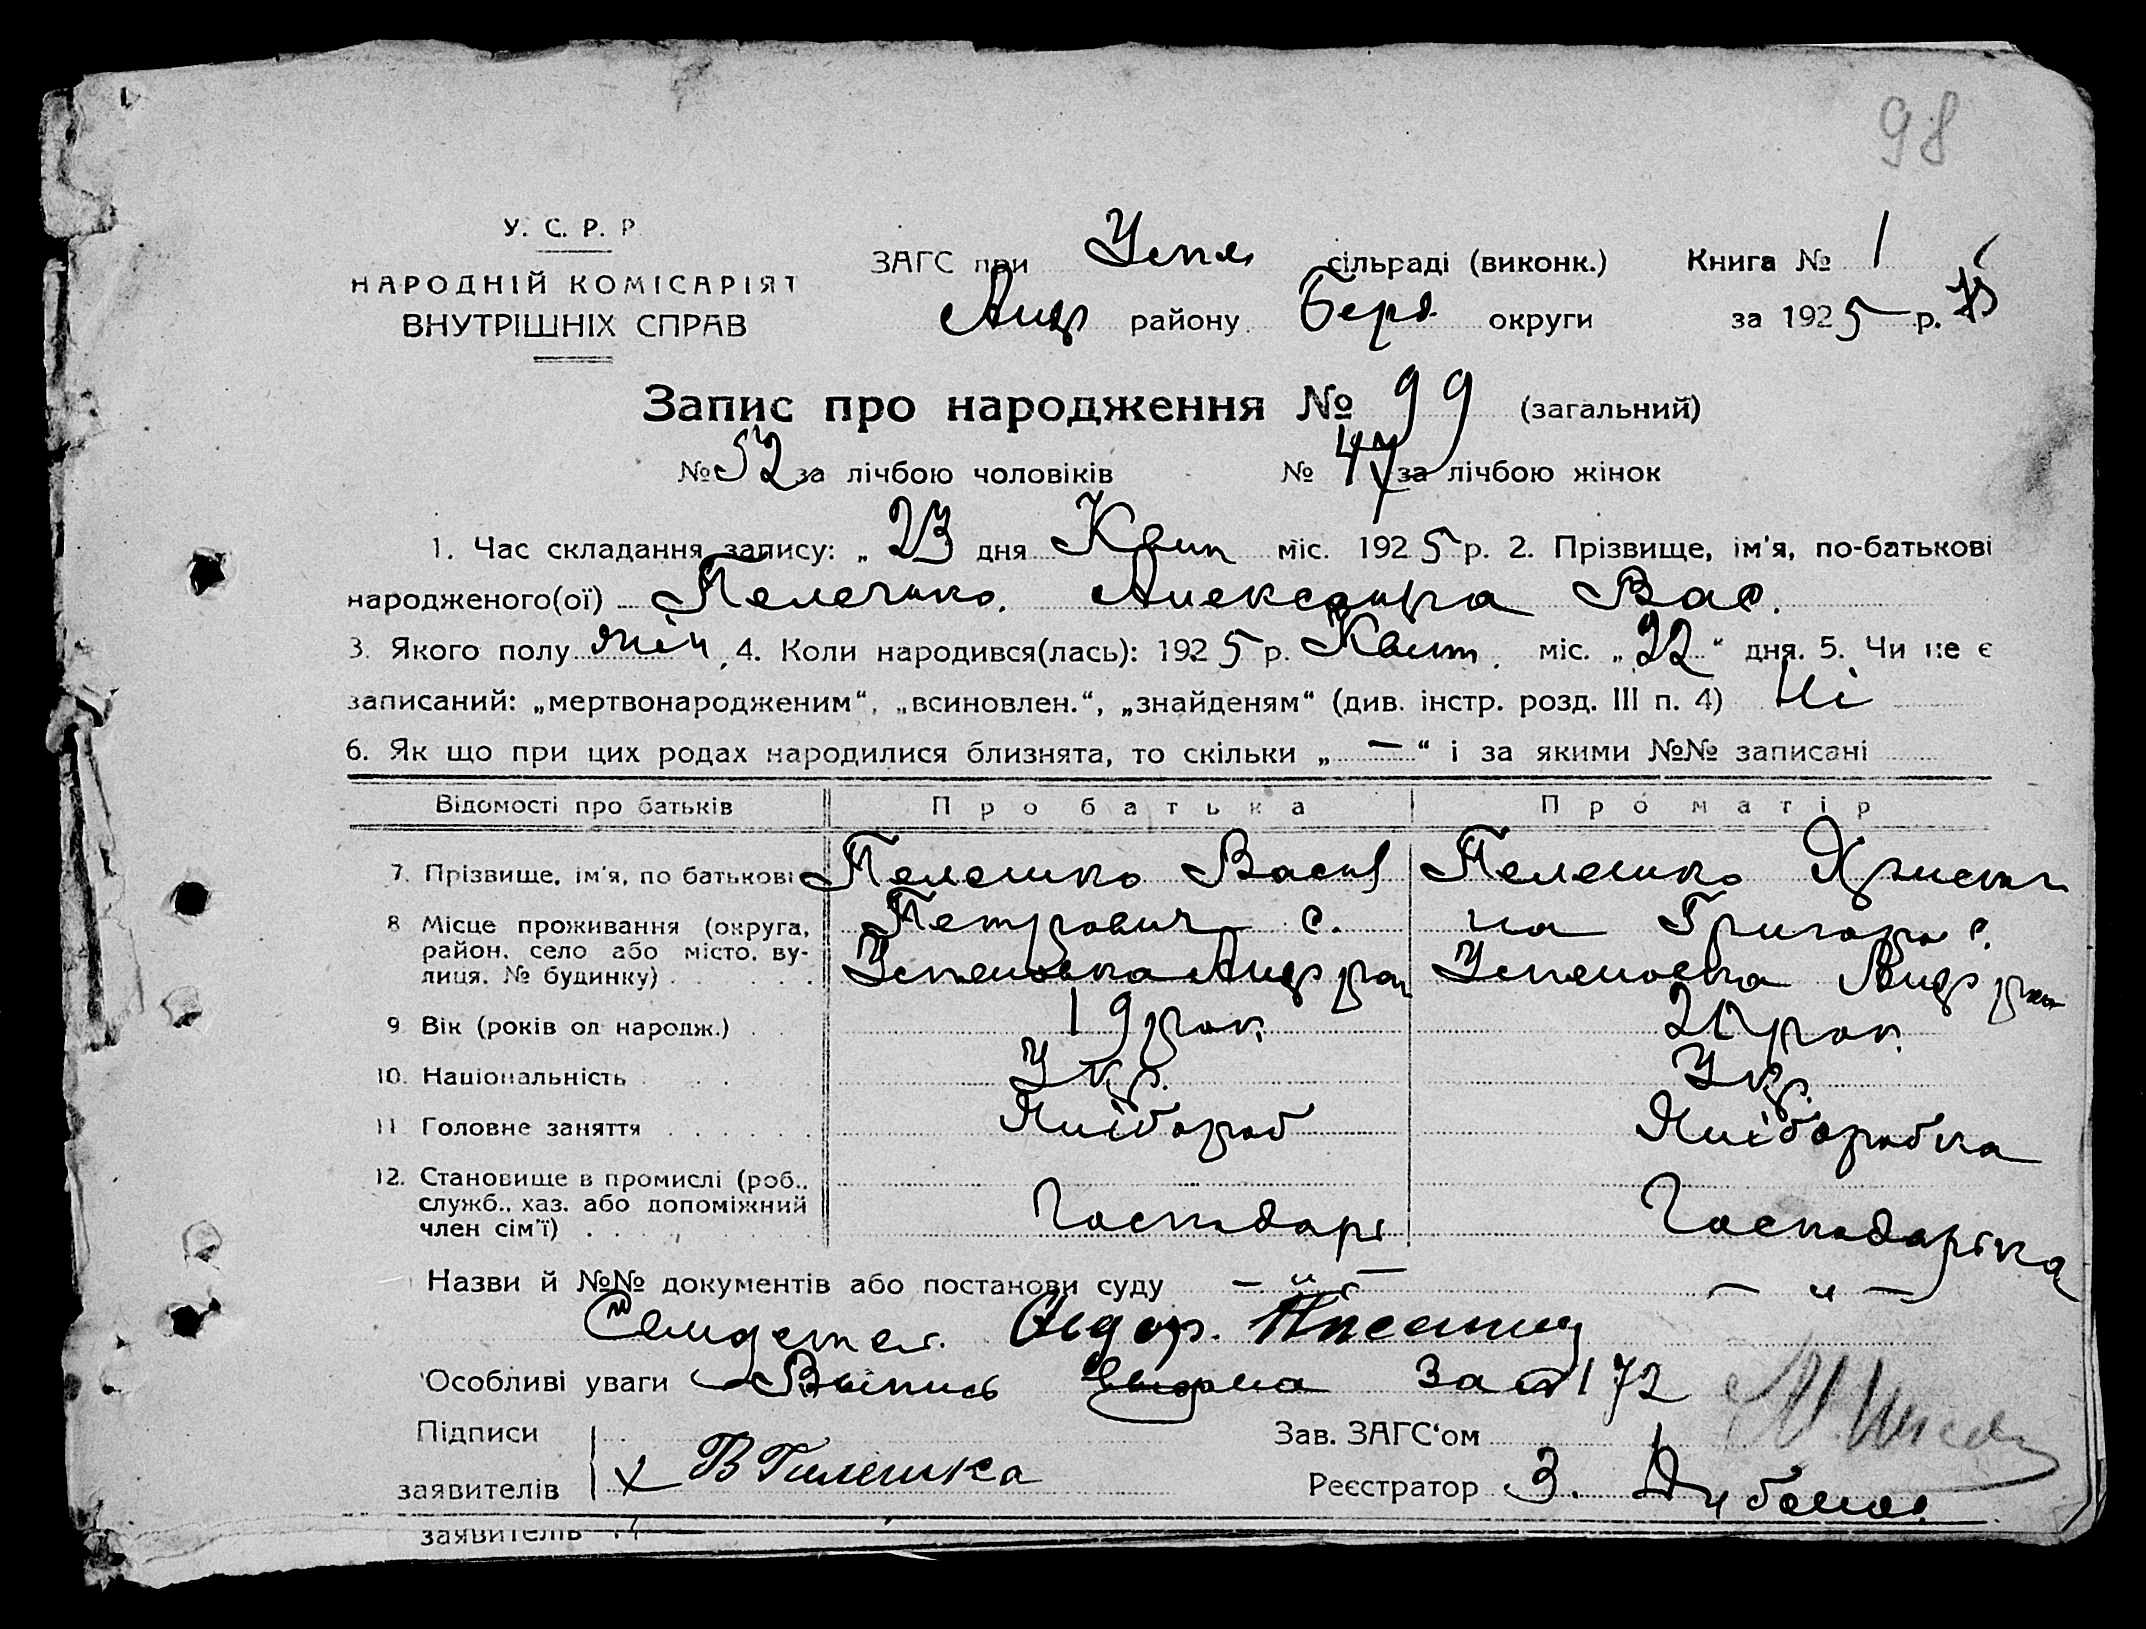 98
У. С. Р. Р.
НАРОДНІЙ КОМІСАРІЯТ
ВНУТРІШНІХ СПРАВ
ЗАГС при Успен сільраді (виконк.) Книга № 1
Андр району Берд. округи за 1925 р.
Запис про народження № 99 (загальний)
№ 52 за лічбою чоловіків № 47 за лічбою жінок
1. Час складання запису: „23 дня Квит міс. 1925 р. 2. Прізвище, ім'я, по-батькові
народженого(ої) Пелешко. Александра Вас.
3. Якого полу жін, 4. Коли народився(лась): 1925 р. Квит. міс. „22" дня. 5. Чи не є
записаний: „мертвонародженим", „всиновлен.", „знайденям" (див. інстр. розд. III п. 4) Ні
6. Як що при цих родах народилися близнята, то скільки „—" і за якими №№ записані
Відомості про батьків Про батька Про матір
7. Прізвище, ім'я, по батькові Пелешко Васил Пелешко Христи
8 Місце проживання (округа, район, село або місто, вулиця, № будинку) Петрович с. на Григор с.
Успеновка Андр рай Успеновка Андр рай
9 Вік (років од народж.) 19 рок. рок.
10. Національність Укр. Укр.
11 Головне заняття Хлібороб Хліборобка
12. Становище в промислі (роб., служб., хаз. або допоміжний член сім'ї) Господарь Господарька
Назви й №№ документів або постанови суду — „ — — „ —
Особливі уваги Выпись за № 172
Підписи
заявителів х В Гилешка
Зав. ЗАГС'ом
Реєстратор З.
заявителів